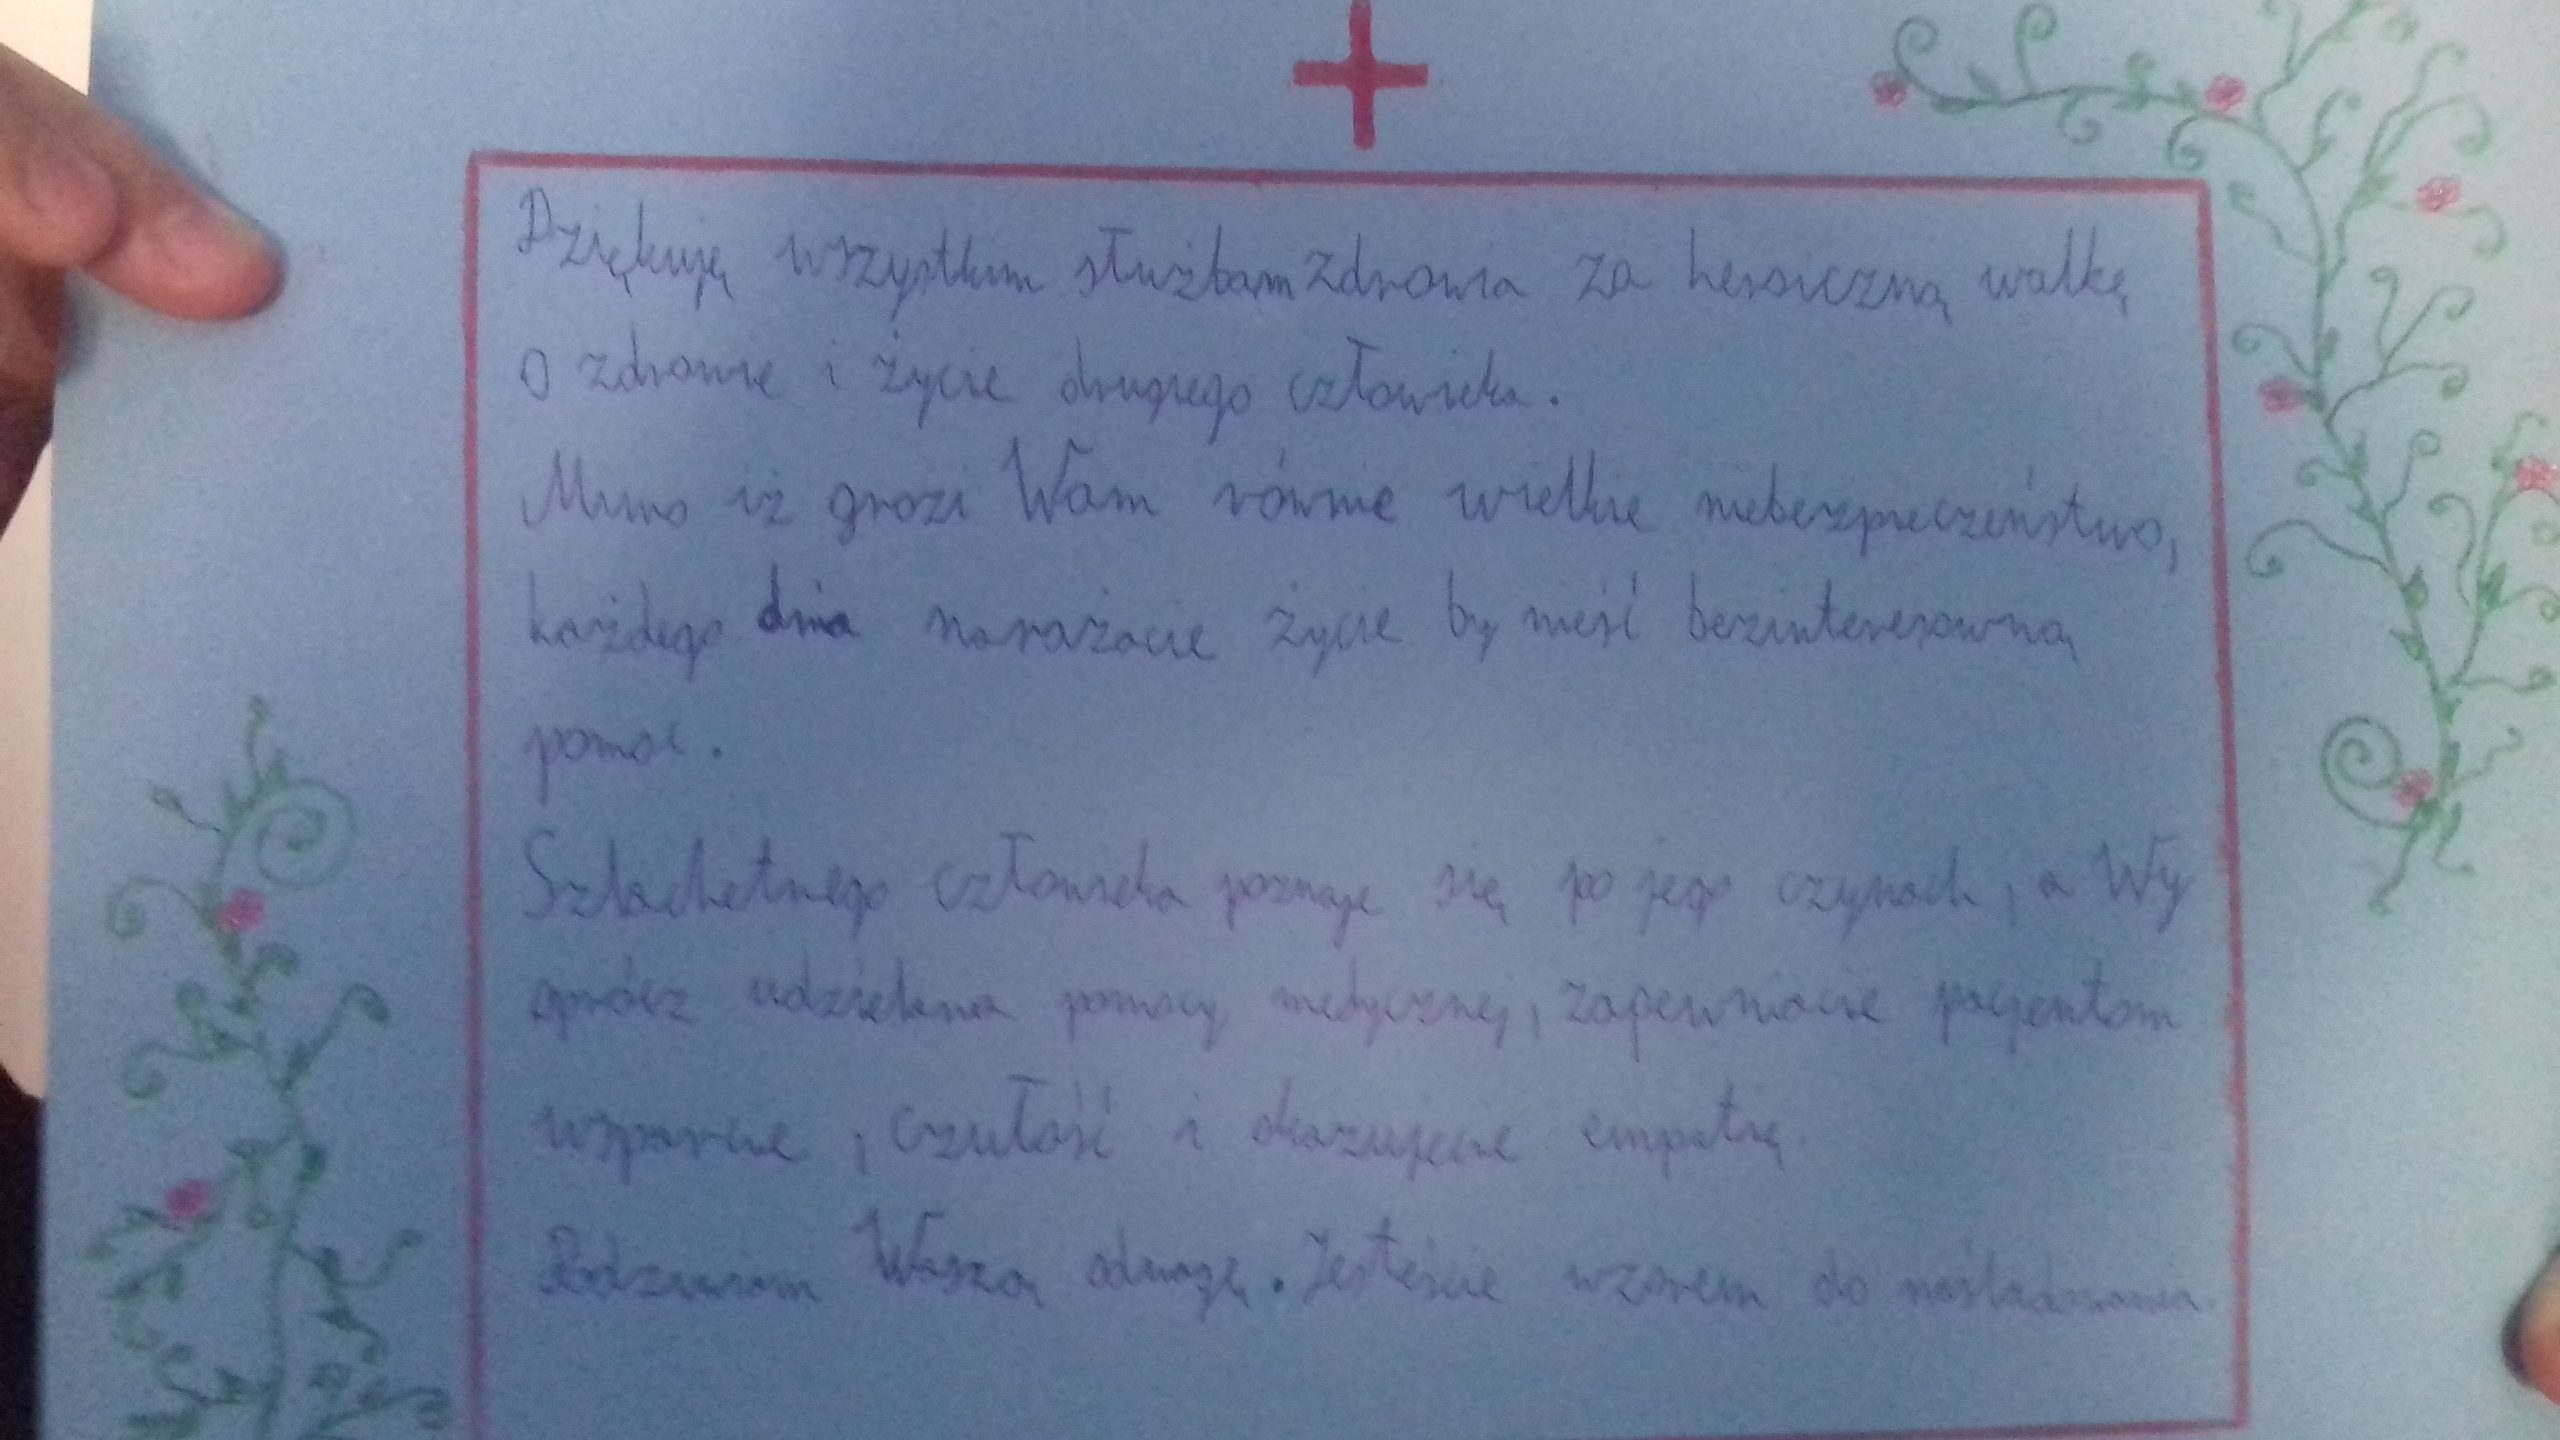 Dziękuję wszystkim służbam zdrowia za heroiczną walkę
o zdrowie i życie drugiego człowieka.
Mimo iż grozi Wam równie wielkie niebezpieczeństwo,
każdego dnia narażacie życie by nieść bezinteresowną
pomoc.
Szlachetnego człowieka poznaje się po jego czynach, a Wy
oprócz udzielania pomocy medycznej, zapewniacie pacjentom
wsparcie, czułość i okazujecie empatię.
Podziwiam Waszą odwagę. Jesteście wzorem do naśladowania.